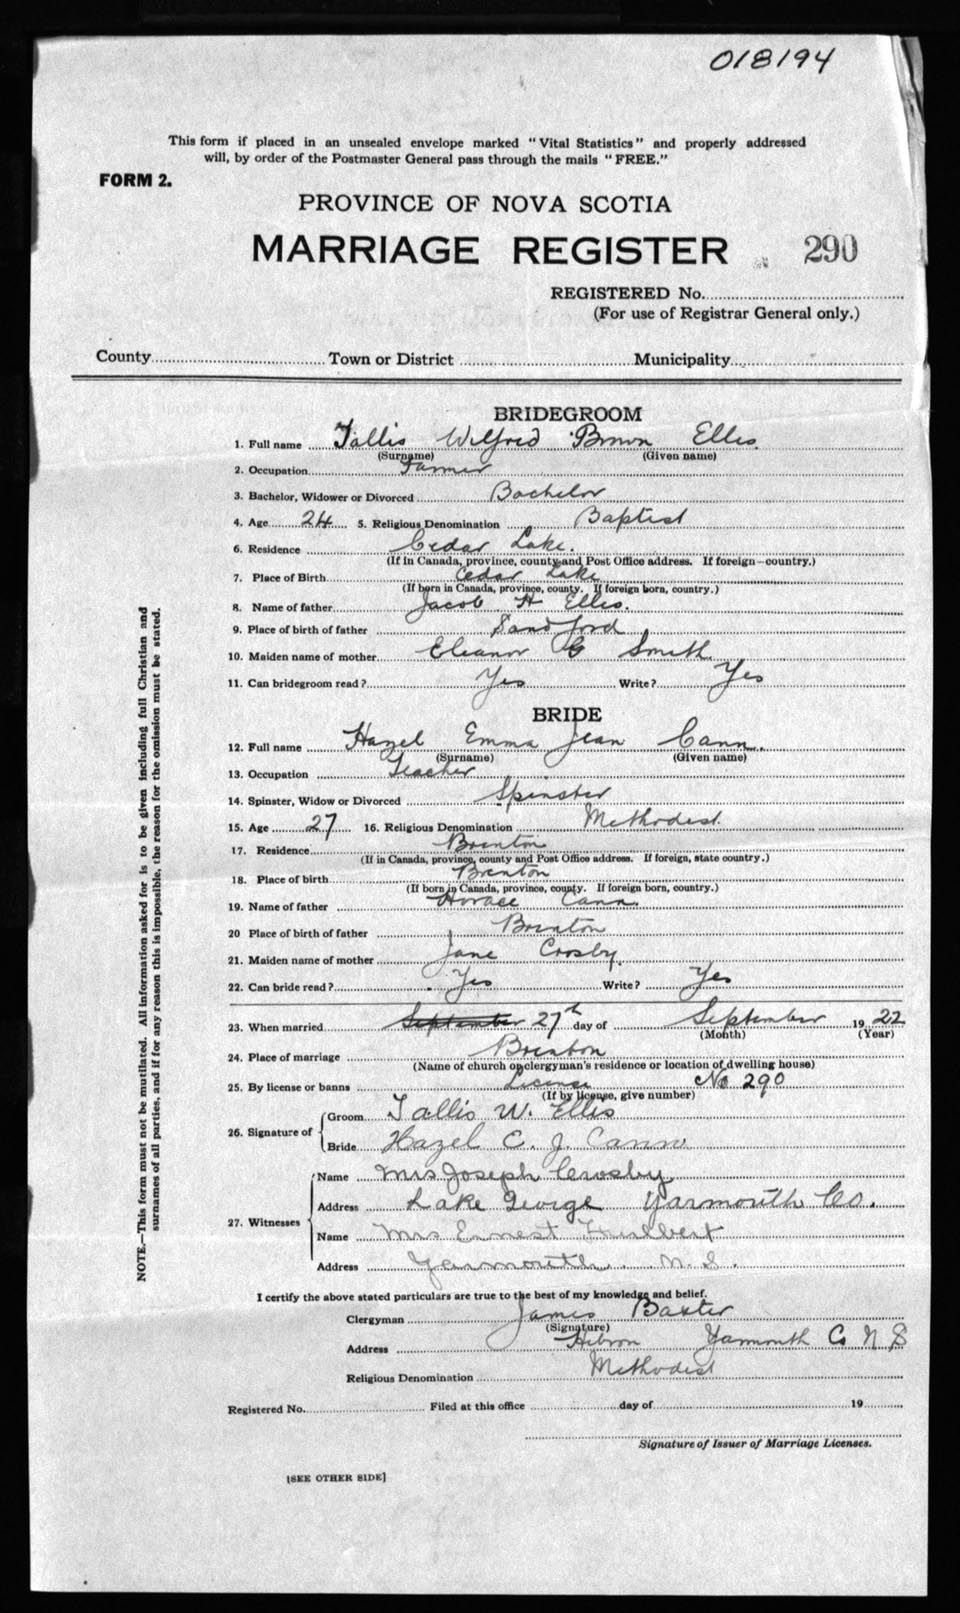 018194
This form if placed in an unsealed envelope marked "Vital Statistics" and properly addressed
will, by order of the Postmaster General pass through the mails "FREE."
FORM 2.
PROVINCE OF NOVA SCOTIA
MARRIAGE REGISTER 290
REGISTERED No.
(For use of Registrar General only.)
County Town or District Municipality
BRIDEGROOM
1. Full name Tallis Wilfred Brown Ellis
(Surname) (Given name)
2. Occupation Farmer
3. Bachelor, Widower or Divorced Bachelor
4. Age 24 5. Religious Denomination Baptist
6. Residence Cedar Lake.
(If in Canada, province, county and Post Office address. If foreign—country.)
7. Place of Birth Cedar Lake
(If born in Canada, province, county. If foreign born, country.)
8. Name of father Jacob H Ellis.
9. Place of birth of father Sandford
10. Maiden name of mother Eleanor G Smith
11. Can bridegroom read? Yes Write? Yes
BRIDE
12. Full name Hazel Emma Jean Cann.
(Surname) (Given name)
13. Occupation Teacher
14. Spinster, Widow or Divorced Spinster
15. Age 27 16. Religious Denomination Methodist.
17. Residence Brenton
(If in Canada, province, county and Post Office address. If foreign, state country.)
18. Place of birth Brenton
(If born in Canada, province, county. If foreign born, country.)
19. Name of father Horace Cann.
20 Place of birth of father Brenton
21. Maiden name of mother Jane Crosby.
22. Can bride read? Yes Write? Yes
23. When married September 27th day of September 1922
(Month) (Year)
24. Place of marriage Brenton
(Name of church or clergyman's residence or location of dwelling house)
25. By license or banns License No 290
(If by license, give number)
26. Signature of Groom Tallis W. Ellis
Bride Hazel E. J. Cann
27. Witnesses Name Mrs Joseph Crosby
Address Lake George Yarmouth Co.
Name Mrs Ernest Hurlbert
Address Yarmouth N. S.
I certify the above stated particulars are true to the best of my knowledge and belief.
Clergyman James Baxter
(Signature)
Address Hebron Yarmouth Co N S
Religious Denomination Methodist
Registered No. Filed at this office day of 19
Signature of Issuer of Marriage Licenses.
[SEE OTHER SIDE]
NOTE.—This form must not be mutilated. All information asked for is to be given including full Christian and
surnames of all parties, and if for any reason this is impossible, the reason for the omission must be stated.